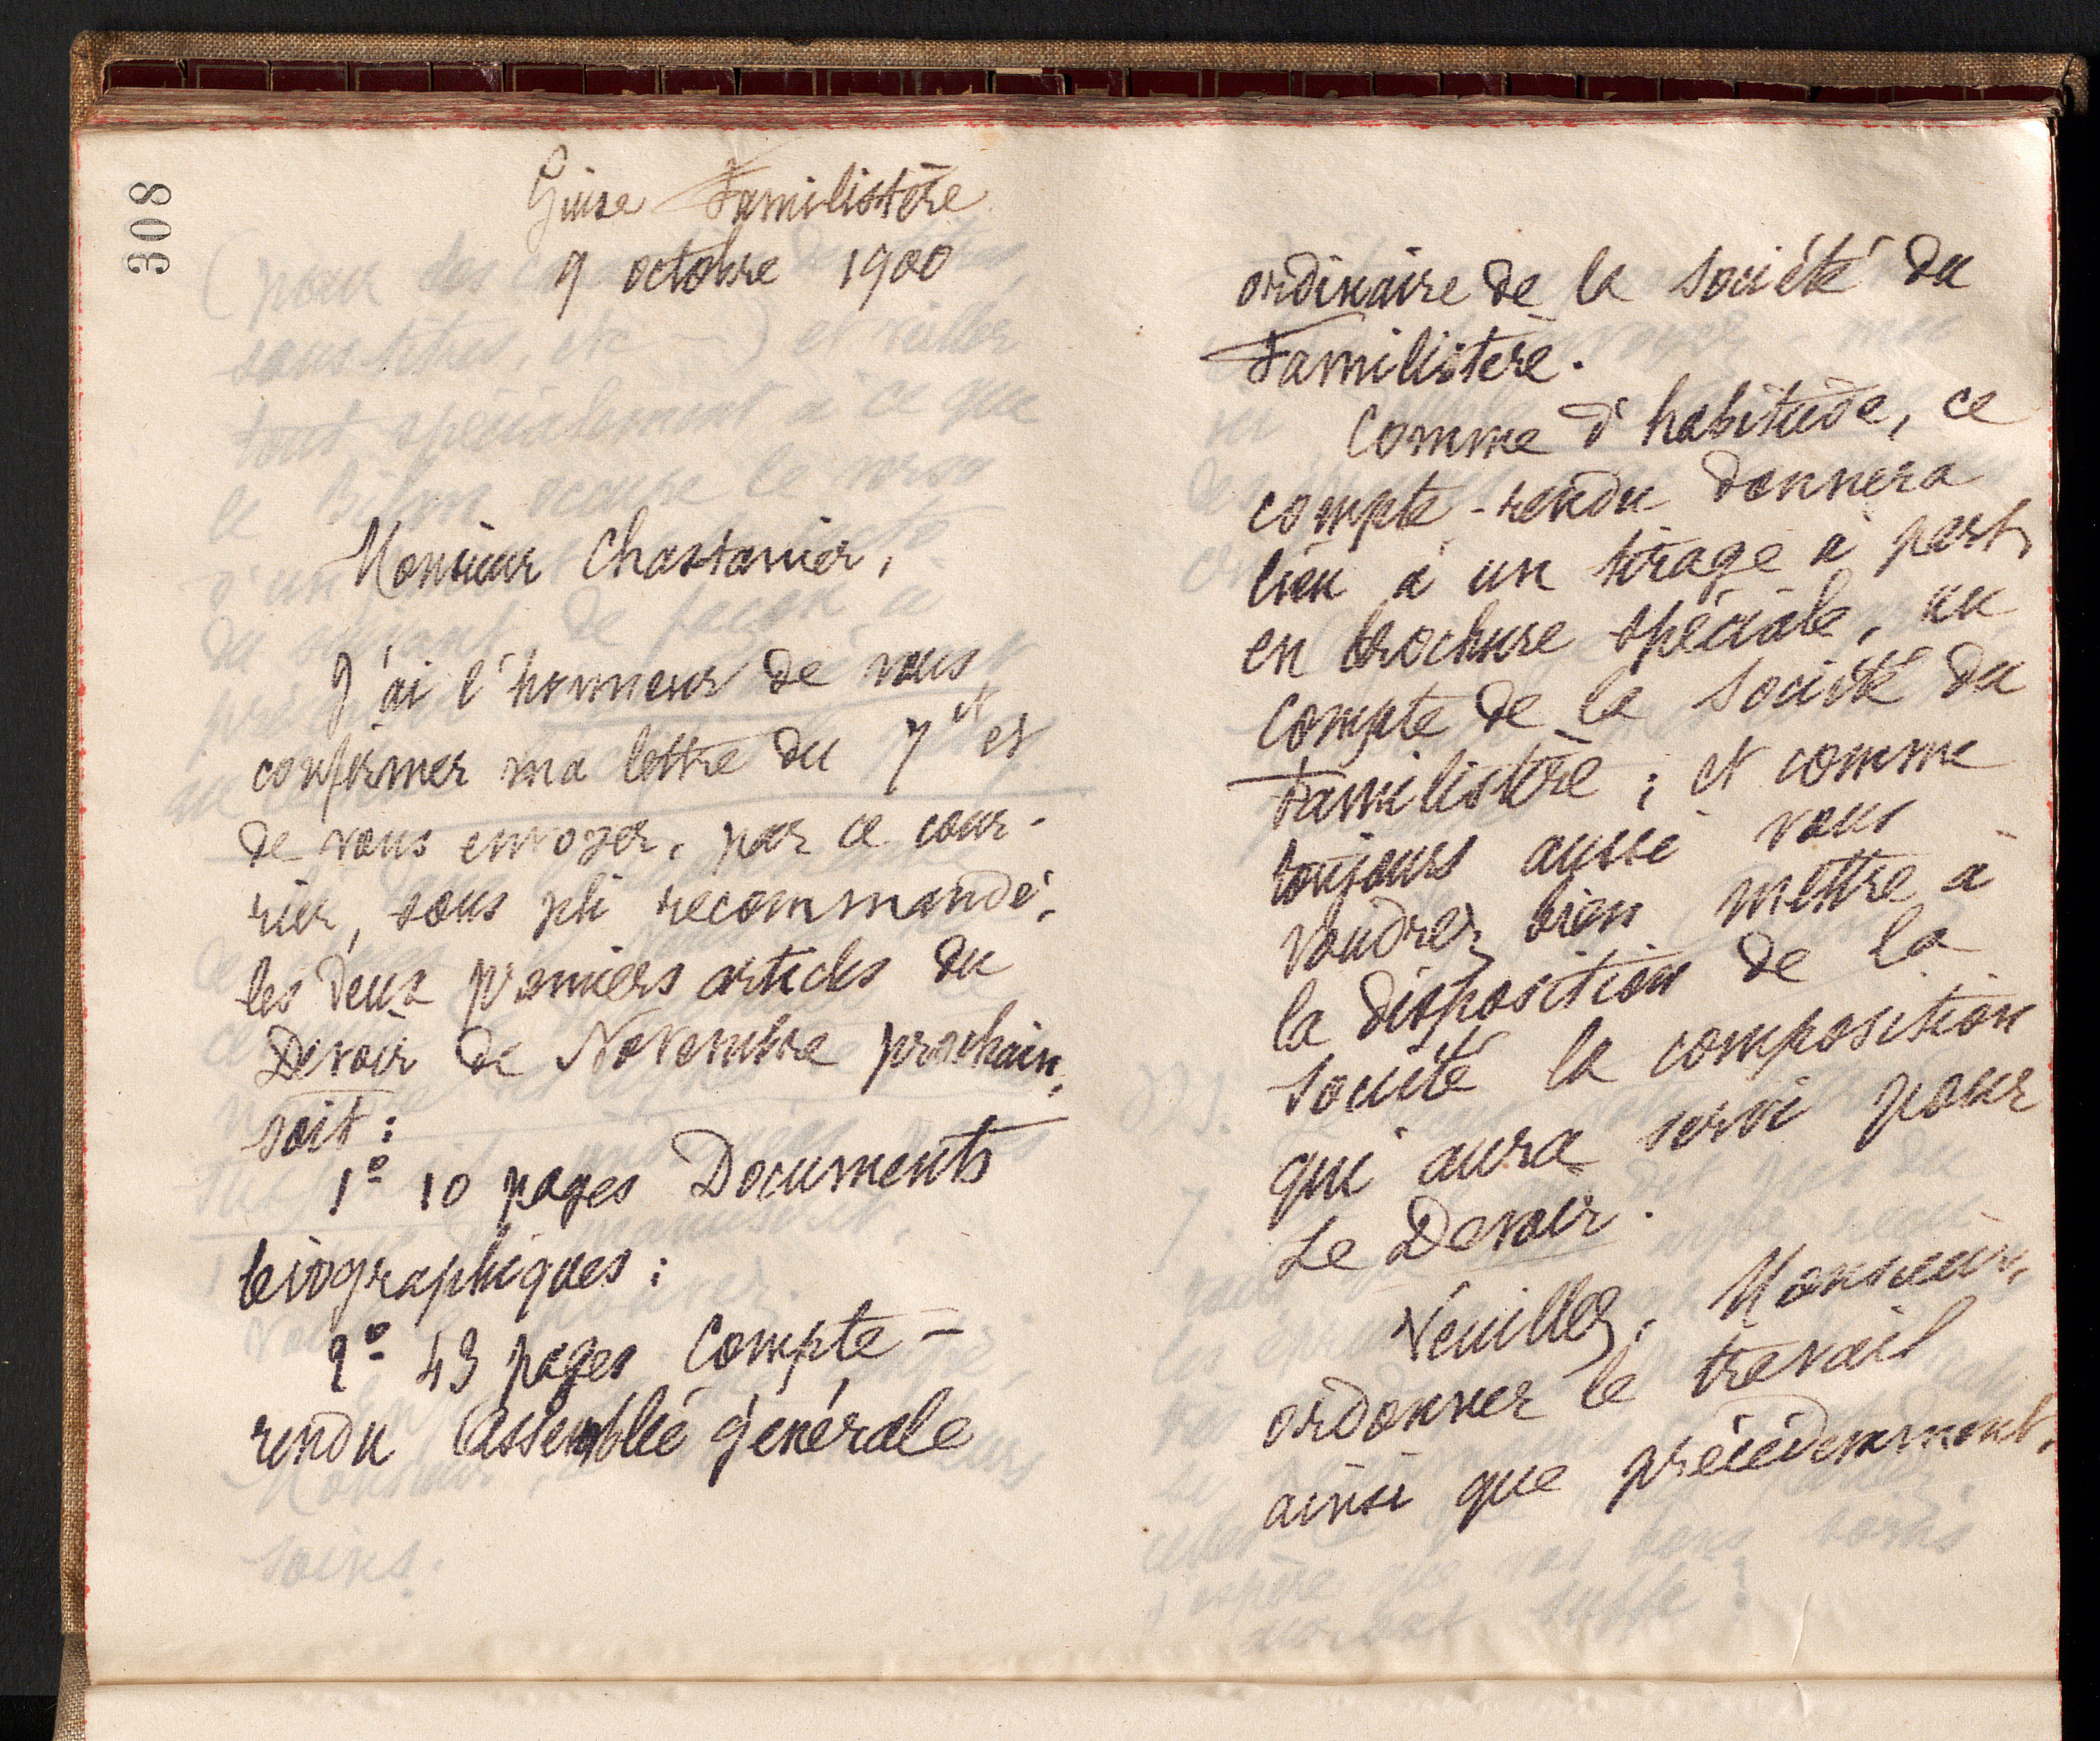 308
Guise Familistère
9 octobre 1900
Monsieur Chastanier,
J'ai l'honneur de vous
confirmer ma lettre du 7 ct et
de vous envoyer, par ce cour-
rier, sous pli recommandé,
les deux premiers articles du
Devoir de Novembre prochain,
soit :
1º 10 pages Documents
biographiques :
2º 43 pages Compte-
rendu Assemblée générale
ordinaire de la Société du
Familistère.
Comme d'habitude, ce
compte-rendu donnera
lieu à un tirage à part,
en brochure spéciale, au
compte de la Société du
Familistère ; et comme
toujours aussi vous
voudrez bien mettre à
la disposition de la
Société la composition
qui aura servi pour
Le Devoir.
Veuillez, Monsieur,
ordonner le travail
ainsi que précédemment.